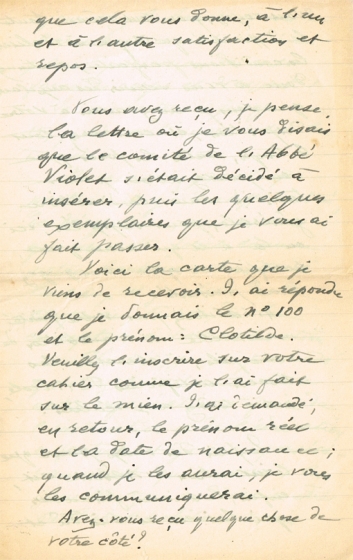 que cela vous donne, à l'un
et à l'autre satisfaction et
repos.
Vous avez reçu, je pense,
la lettre où je vous disais
que le comité de l'Abbé
Violet s'était décidé à
insérer, puis les quelques
exemplaires que je vous ai
fait passer.
Voici la carte que je
viens de recevoir. J'ai répondu
que je donnais le nº 100
et le prénom : Clotilde.
Veuillez l'inscrire sur votre
cahier comme je l'ai fait
sur le mien. J'ai demandé,
en retour, le prénom réel
et la date de naissance ;
quand je les aurai, je vous
les communiquerai.
Avez-vous reçu quelque chose de
votre côté?